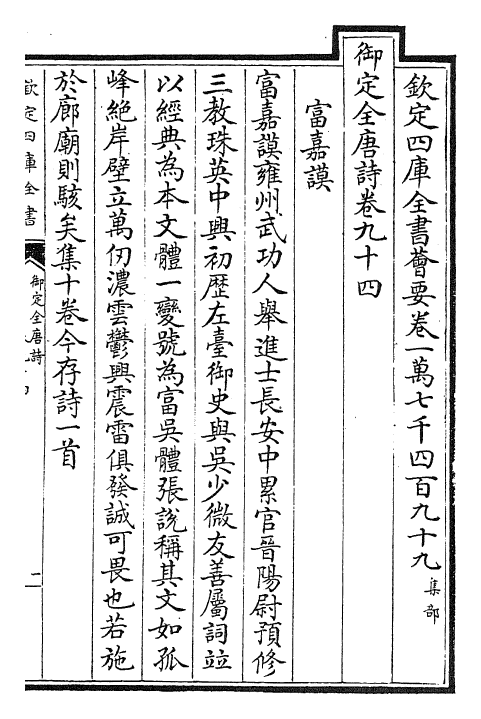 欽定四庫全書薈要卷一萬七千四百九十九 集部
御定全唐詩卷九十四
富嘉謨
富嘉謨雍州武功人舉進士長安中累官晉陽尉預修
三教珠英中興初歴左臺御史與吳少微友善屬詞竝
以經典為本文體一變號為富吳體張說稱其文如孤
峰絶岸壁立萬仞濃雲鬱興震雷俱發誠可畏也若施
於廊廟則駭矣集十卷今存詩一首
欽定四庫全書
御定全唐詩
二